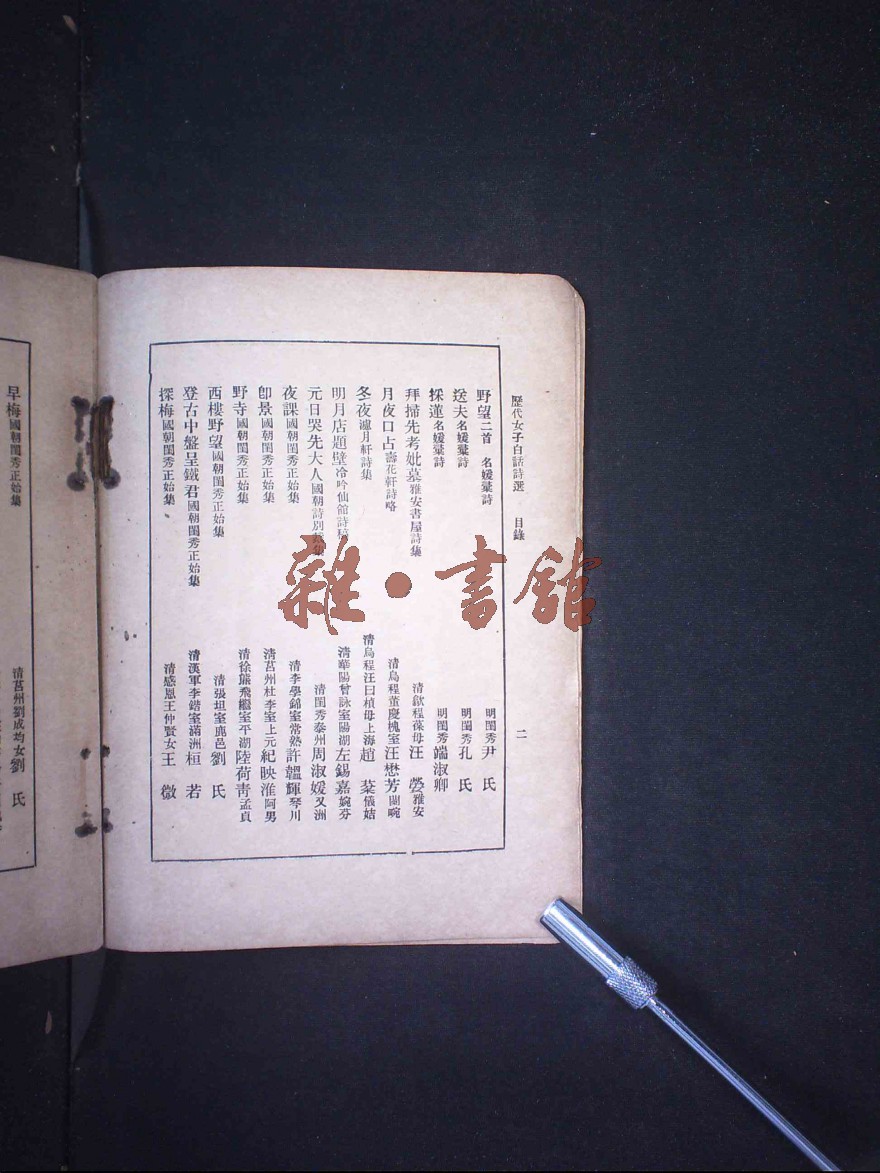 歷代女子白話詩選 目錄 二
野望二首 名媛彙詩 明閨秀尹 氏
送夫名媛彙詩 明閨秀孔 氏
採蓮名媛彙詩 明閨秀端淑卿
拜掃先考妣墓雅安書屋詩集 清歙程葆母汪 嫈雅安
月夜口占壽花軒詩略 清烏程董慶槐室汪懋芳蘭畹
冬夜濾月軒詩集 清烏程汪曰楨母上海趙 棻儀姞
明月店題壁冷吟仙館詩稿 清華陽曾詠室陽湖左錫嘉婉芬
元日哭先大人國朝詩別裁集 清閨秀泰州周淑媛又洲
夜課國朝閨秀正始集 清李學錦室常熟許韞輝琴川
卽景國朝閨秀正始集 清莒州杜李室上元紀映淮阿男
野寺國朝閨秀正始集 清徐熊飛繼室平湖陸荷靑孟貞
西樓野望國朝閨秀正始集 清張坦室鹿邑劉 氏
登古中盤呈鐵君國朝閨秀正始集 清漢軍李鍇室滿洲桓 若
探梅國朝閨秀正始集 清感恩王仲賢女王 微
早梅國朝閨秀正始集 清莒州劉成均女劉 氏
雜·書館